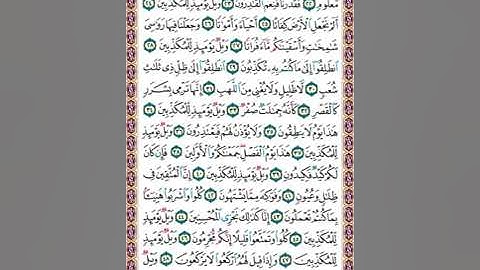 مَّعْلُومٍ ٢٢ فَقَدَرْنَا فَنِعْمَ ٱلْقَٰدِرُونَ ٢٣ وَيْلٌ يَوْمَئِذٍ لِّلْمُكَذِّبِينَ ٢٤
أَلَمْ نَجْعَلِ ٱلْأَرْضَ كِفَاتًا ٢٥ أَحْيَآءً وَأَمْوَٰتًا ٢٦ وَجَعَلْنَا فِيهَا رَوَٰسِىَ
شَٰمِخَٰتٍ وَأَسْقَيْنَٰكُم مَّآءً فُرَاتًا ٢٧ وَيْلٌ يَوْمَئِذٍ لِّلْمُكَذِّبِينَ ٢٨
ٱنطَلِقُوٓا۟ إِلَىٰ مَا كُنتُم بِهِۦ تُكَذِّبُونَ ٢٩ ٱنطَلِقُوٓا۟ إِلَىٰ ظِلٍّ ذِى ثَلَٰثِ
شُعَبٍ ٣٠ لَّا ظَلِيلٍ وَلَا يُغْنِى مِنَ ٱللَّهَبِ ٣١ إِنَّهَا تَرْمِى بِشَرَرٍ
كَٱلْقَصْرِ ٣٢ كَأَنَّهُۥ جِمَٰلَتٌ صُفْرٌ ٣٣ وَيْلٌ يَوْمَئِذٍ لِّلْمُكَذِّبِينَ ٣٤
هَٰذَا يَوْمُ لَا يَنطِقُونَ ٣٥ وَلَا يُؤْذَنُ لَهُمْ فَيَعْتَذِرُونَ ٣٦ وَيْلٌ يَوْمَئِذٍ
لِّلْمُكَذِّبِينَ ٣٧ هَٰذَا يَوْمُ ٱلْفَصْلِ جَمَعْنَٰكُمْ وَٱلْأَوَّلِينَ ٣٨ فَإِن كَانَ
لَكُمْ كَيْدٌ فَكِيدُونِ ٣٩ وَيْلٌ يَوْمَئِذٍ لِّلْمُكَذِّبِينَ ٤٠ إِنَّ ٱلْمُتَّقِينَ فِى
ظِلَٰلٍ وَعُيُونٍ ٤١ وَفَوَٰكِهَ مِمَّا يَشْتَهُونَ ٤٢ كُلُوا۟ وَٱشْرَبُوا۟ هَنِيٓـًٔۢا
بِمَا كُنتُمْ تَعْمَلُونَ ٤٣ إِنَّا كَذَٰلِكَ نَجْزِى ٱلْمُحْسِنِينَ ٤٤ وَيْلٌ يَوْمَئِذٍ
لِّلْمُكَذِّبِينَ ٤٥ كُلُوا۟ وَتَمَتَّعُوا۟ قَلِيلًا إِنَّكُم مُّجْرِمُونَ ٤٦ وَيْلٌ يَوْمَئِذٍ
لِّلْمُكَذِّبِينَ ٤٧ وَإِذَا قِيلَ لَهُمُ ٱرْكَعُوا۟ لَا يَرْكَعُونَ ٤٨ وَيْلٌ